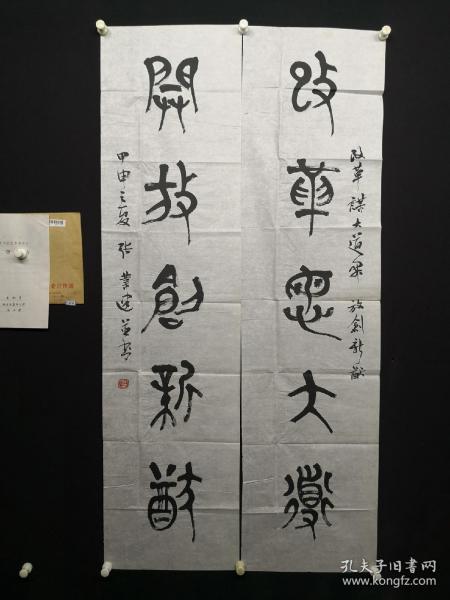 改革謀大道
改革謀大道開放創新猷
開放創新猷
甲申之夏張業建並書
孔夫子旧书网
www.kongfz.com